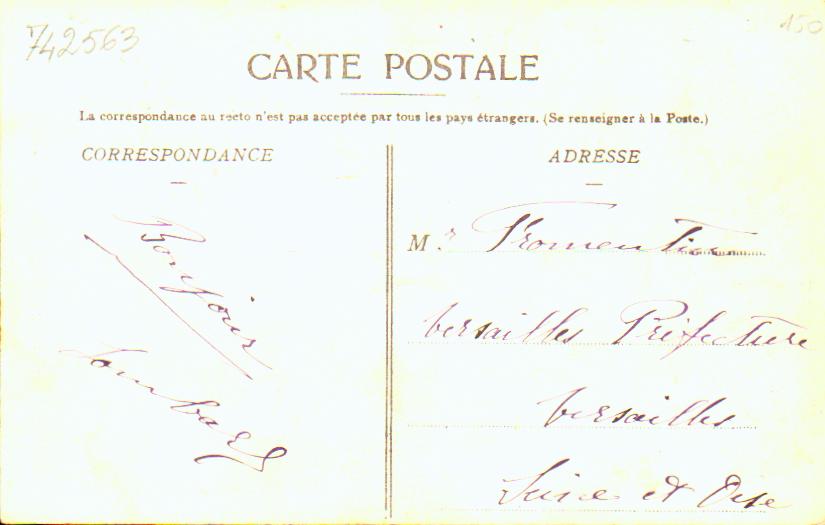 742563
150
CARTE POSTALE
La correspondance au recto n'est pas acceptée par tous les pays étrangers. (Se renseigner à la Poste.)
CORRESPONDANCE
ADRESSE
Bonjour
M.r Fromentin
Versailles Préfecture
Versailles
Seine et Oise